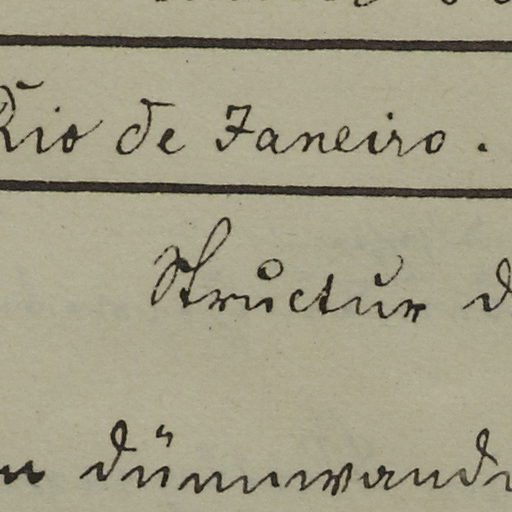 Rio de Janeiro.
Structur d
n dünnwandi